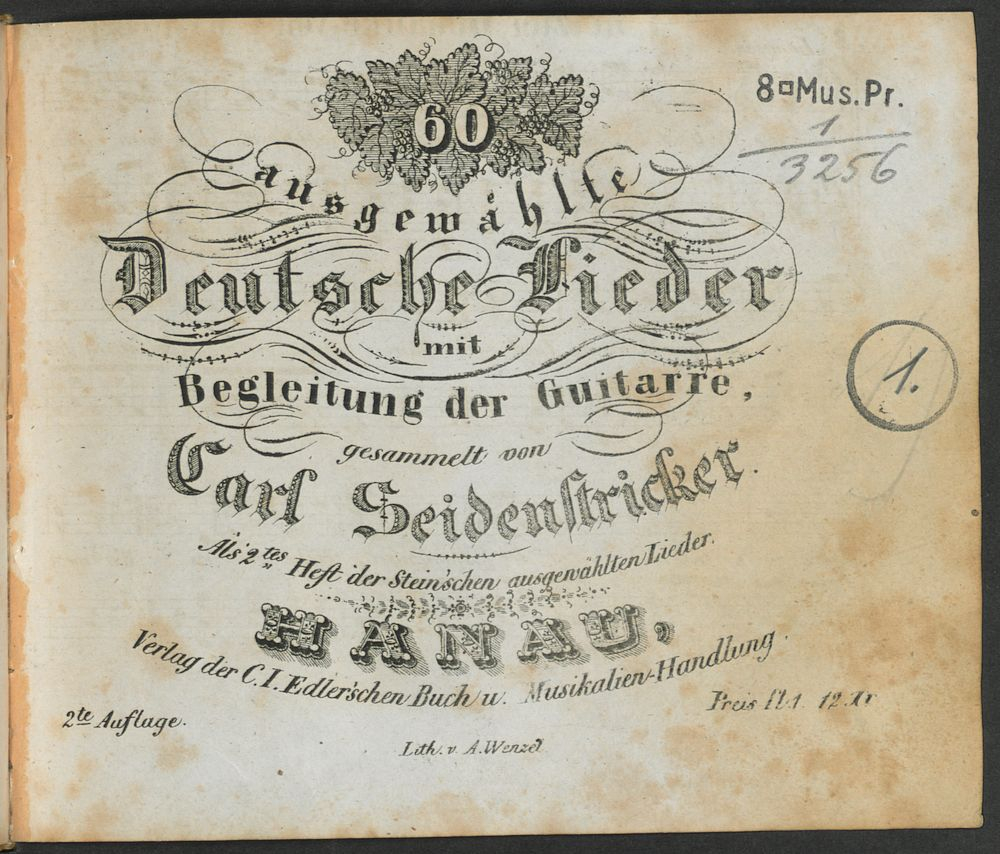 60
ausgewählte
Deutsche Lieder
mit
Begleitung der Guitarre,
gesammelt von
Carl Seidenstricker.
Als 2tes Heft der Stein'schen ausgewählten Lieder.
HANAU,
Verlag der C.I. Edler'schen Buch u. Musikalien-Handlung.
Preis fl.1. 12.Xr
2te Auflage.
Lith. v. A. Wenzel
8 Mus.Pr.
1
3256
1.